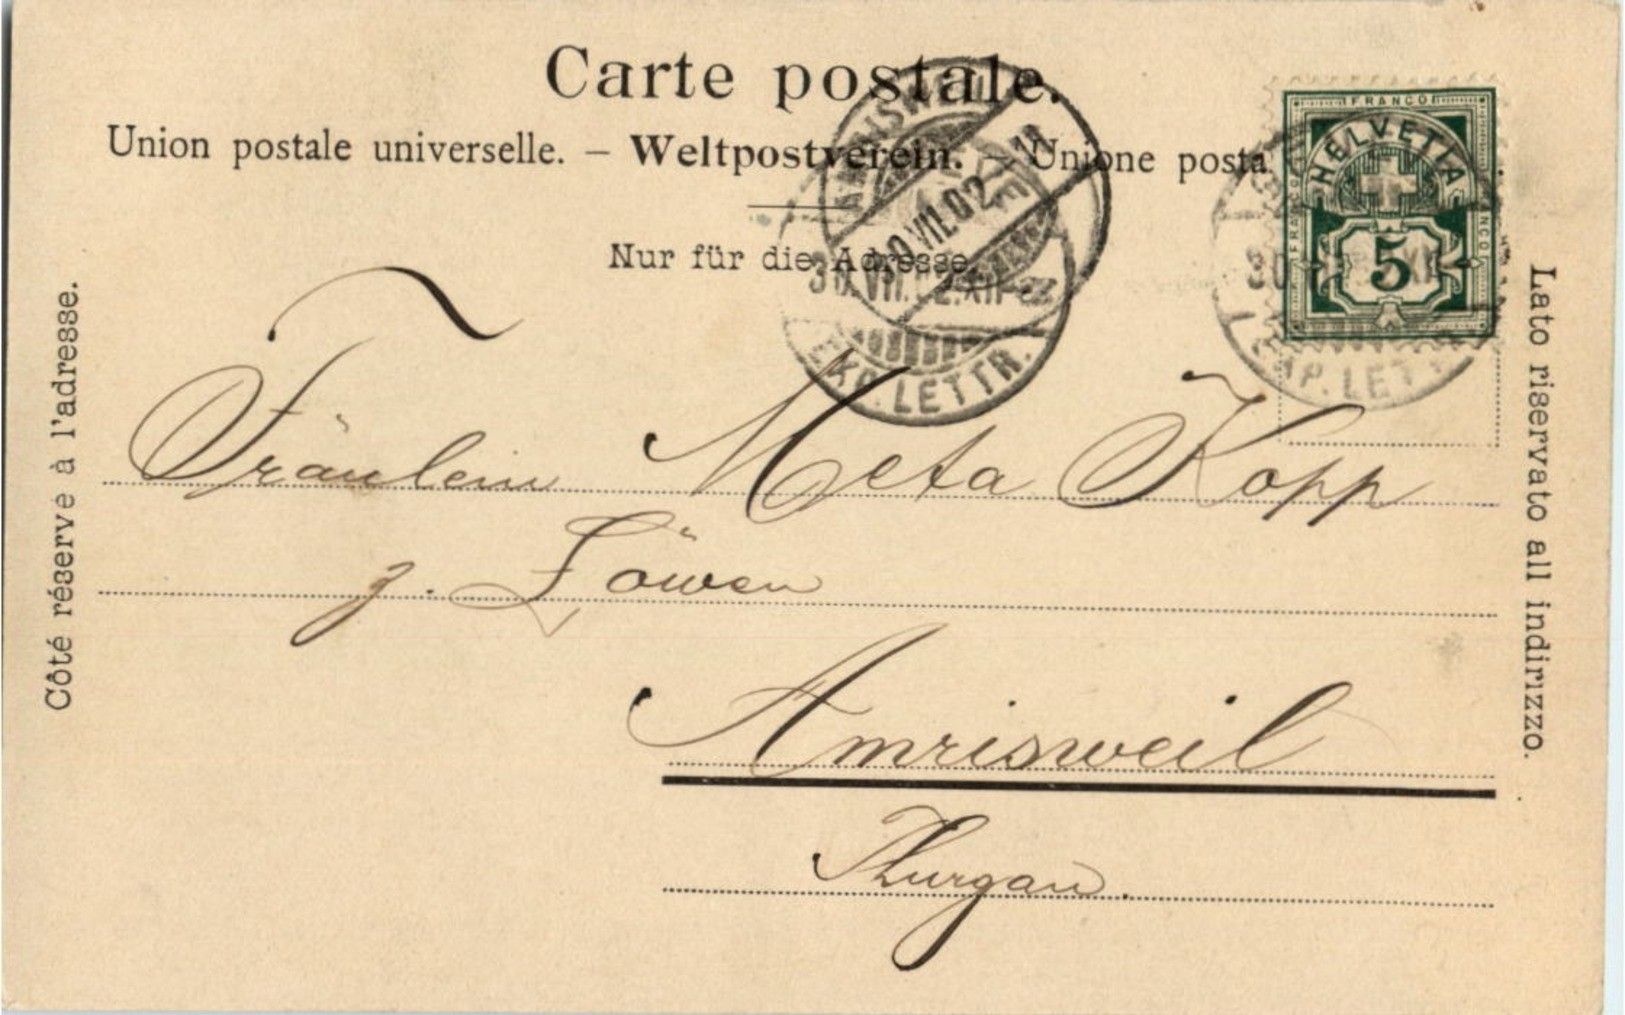 Carte postale.
Union postale universelle. – Weltpostverein. – Unione posta
Nur für die Adresse.
FRANCO
HELVETIA
FRANCO
5
AMRISWEIL
30.VII.02
30.VII.02.XII
EXP. LETTR.
EXP. LETTR.
Côté réservé à l'adresse.
Lato riservato all indirizzo.
Fräulein Meta Kopp
z. Löwen
Amrisweil
Thurgau.